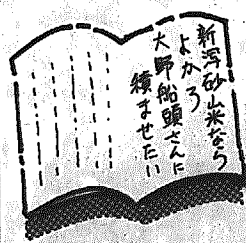 新潟砂山米なら
よかろ
大野船頭さんに
積ませたい